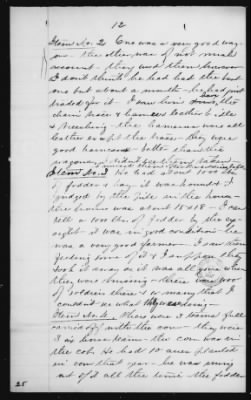 12
Item No. 2 One was a very good wag-
on - the other was of not much
account - they used them
I don't think he had had the best
one but about a month - he had just
traded for it - I saw him
chain traces & hames leather
& breeching - the hames were all
leather except the traces - they were
good harness - better than the
wagons
Item No. 3 He had about 1000 lbs
of fodder & hay it was bound & I
judged by the pile in the house -
the house was about 18 x 18 - I can
tell a 1000 lbs of fodder by the eye
sight it was in good condition - he
was a very good farmer - I saw them
feeding some of it & I suppose they
took it away as it was all gone when
they were - there was
of soldiers there - so many that I
couldn't see what they were
Item No. 4. There were 2 teams full
carried off with the corn - they were
2 horse teams - the corn was in
the cob. He had 10 acres planted
in corn that year - he was
out of it all the time - the fodder
25